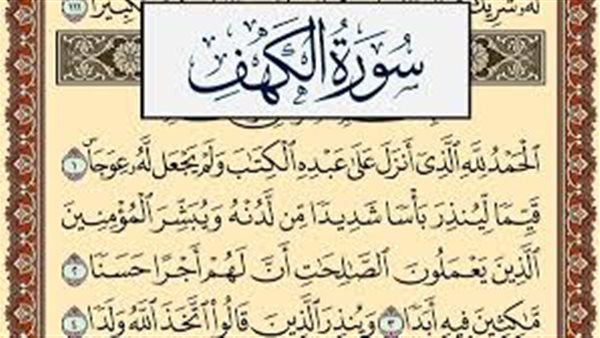 لَهُۥ شَرِيكٌ تَكْبِيرًا ١١١
سُورَةُ الكَهْفِ
ٱلْحَمْدُ لِلَّهِ ٱلَّذِىٓ أَنزَلَ عَلَىٰ عَبْدِهِ ٱلْكِتَٰبَ وَلَمْ يَجْعَل لَّهُۥ عِوَجَاۜ ١
قَيِّمًا لِّيُنذِرَ بَأْسًا شَدِيدًا مِّن لَّدُنْهُ وَيُبَشِّرَ ٱلْمُؤْمِنِينَ
ٱلَّذِينَ يَعْمَلُونَ ٱلصَّٰلِحَٰتِ أَنَّ لَهُمْ أَجْرًا حَسَنًا ٢
مَّٰكِثِينَ فِيهِ أَبَدًا ٣ وَيُنذِرَ ٱلَّذِينَ قَالُوا۟ ٱتَّخَذَ ٱللَّهُ وَلَدًا ٤